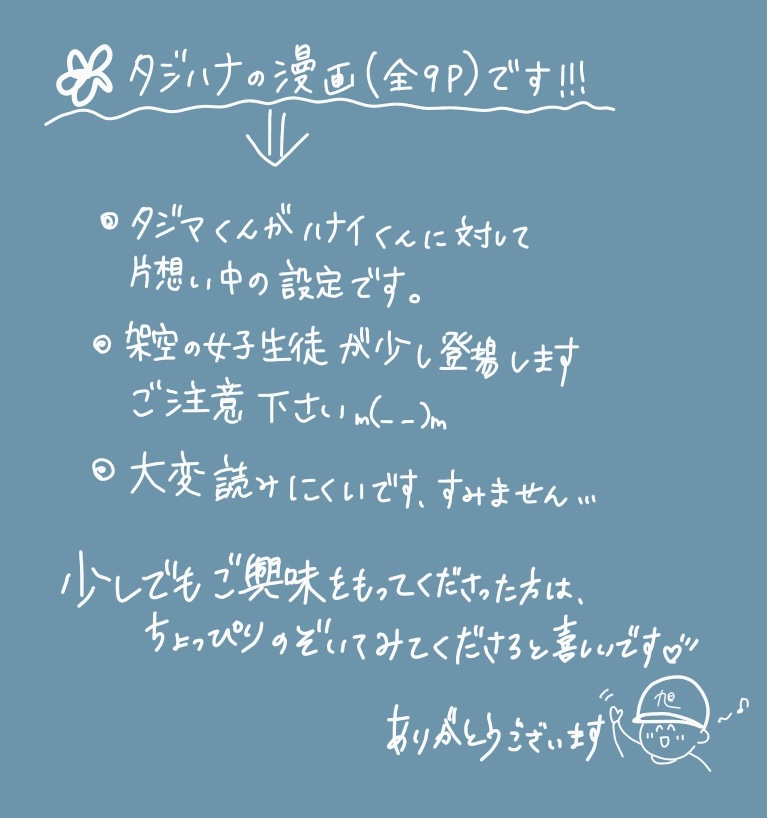 タジハナの漫画(全9P)です!!!
タジマくんがハナイくんに対して
片想い中の設定です。
架空の女子生徒が少し登場します
ご注意下さいm(--)m
大変読みにくいです、すみません…
少しでもご興味をもってくださった方は、
ちょっぴりのぞいてみてくださると喜しいです♡
ありがとうございます
旭